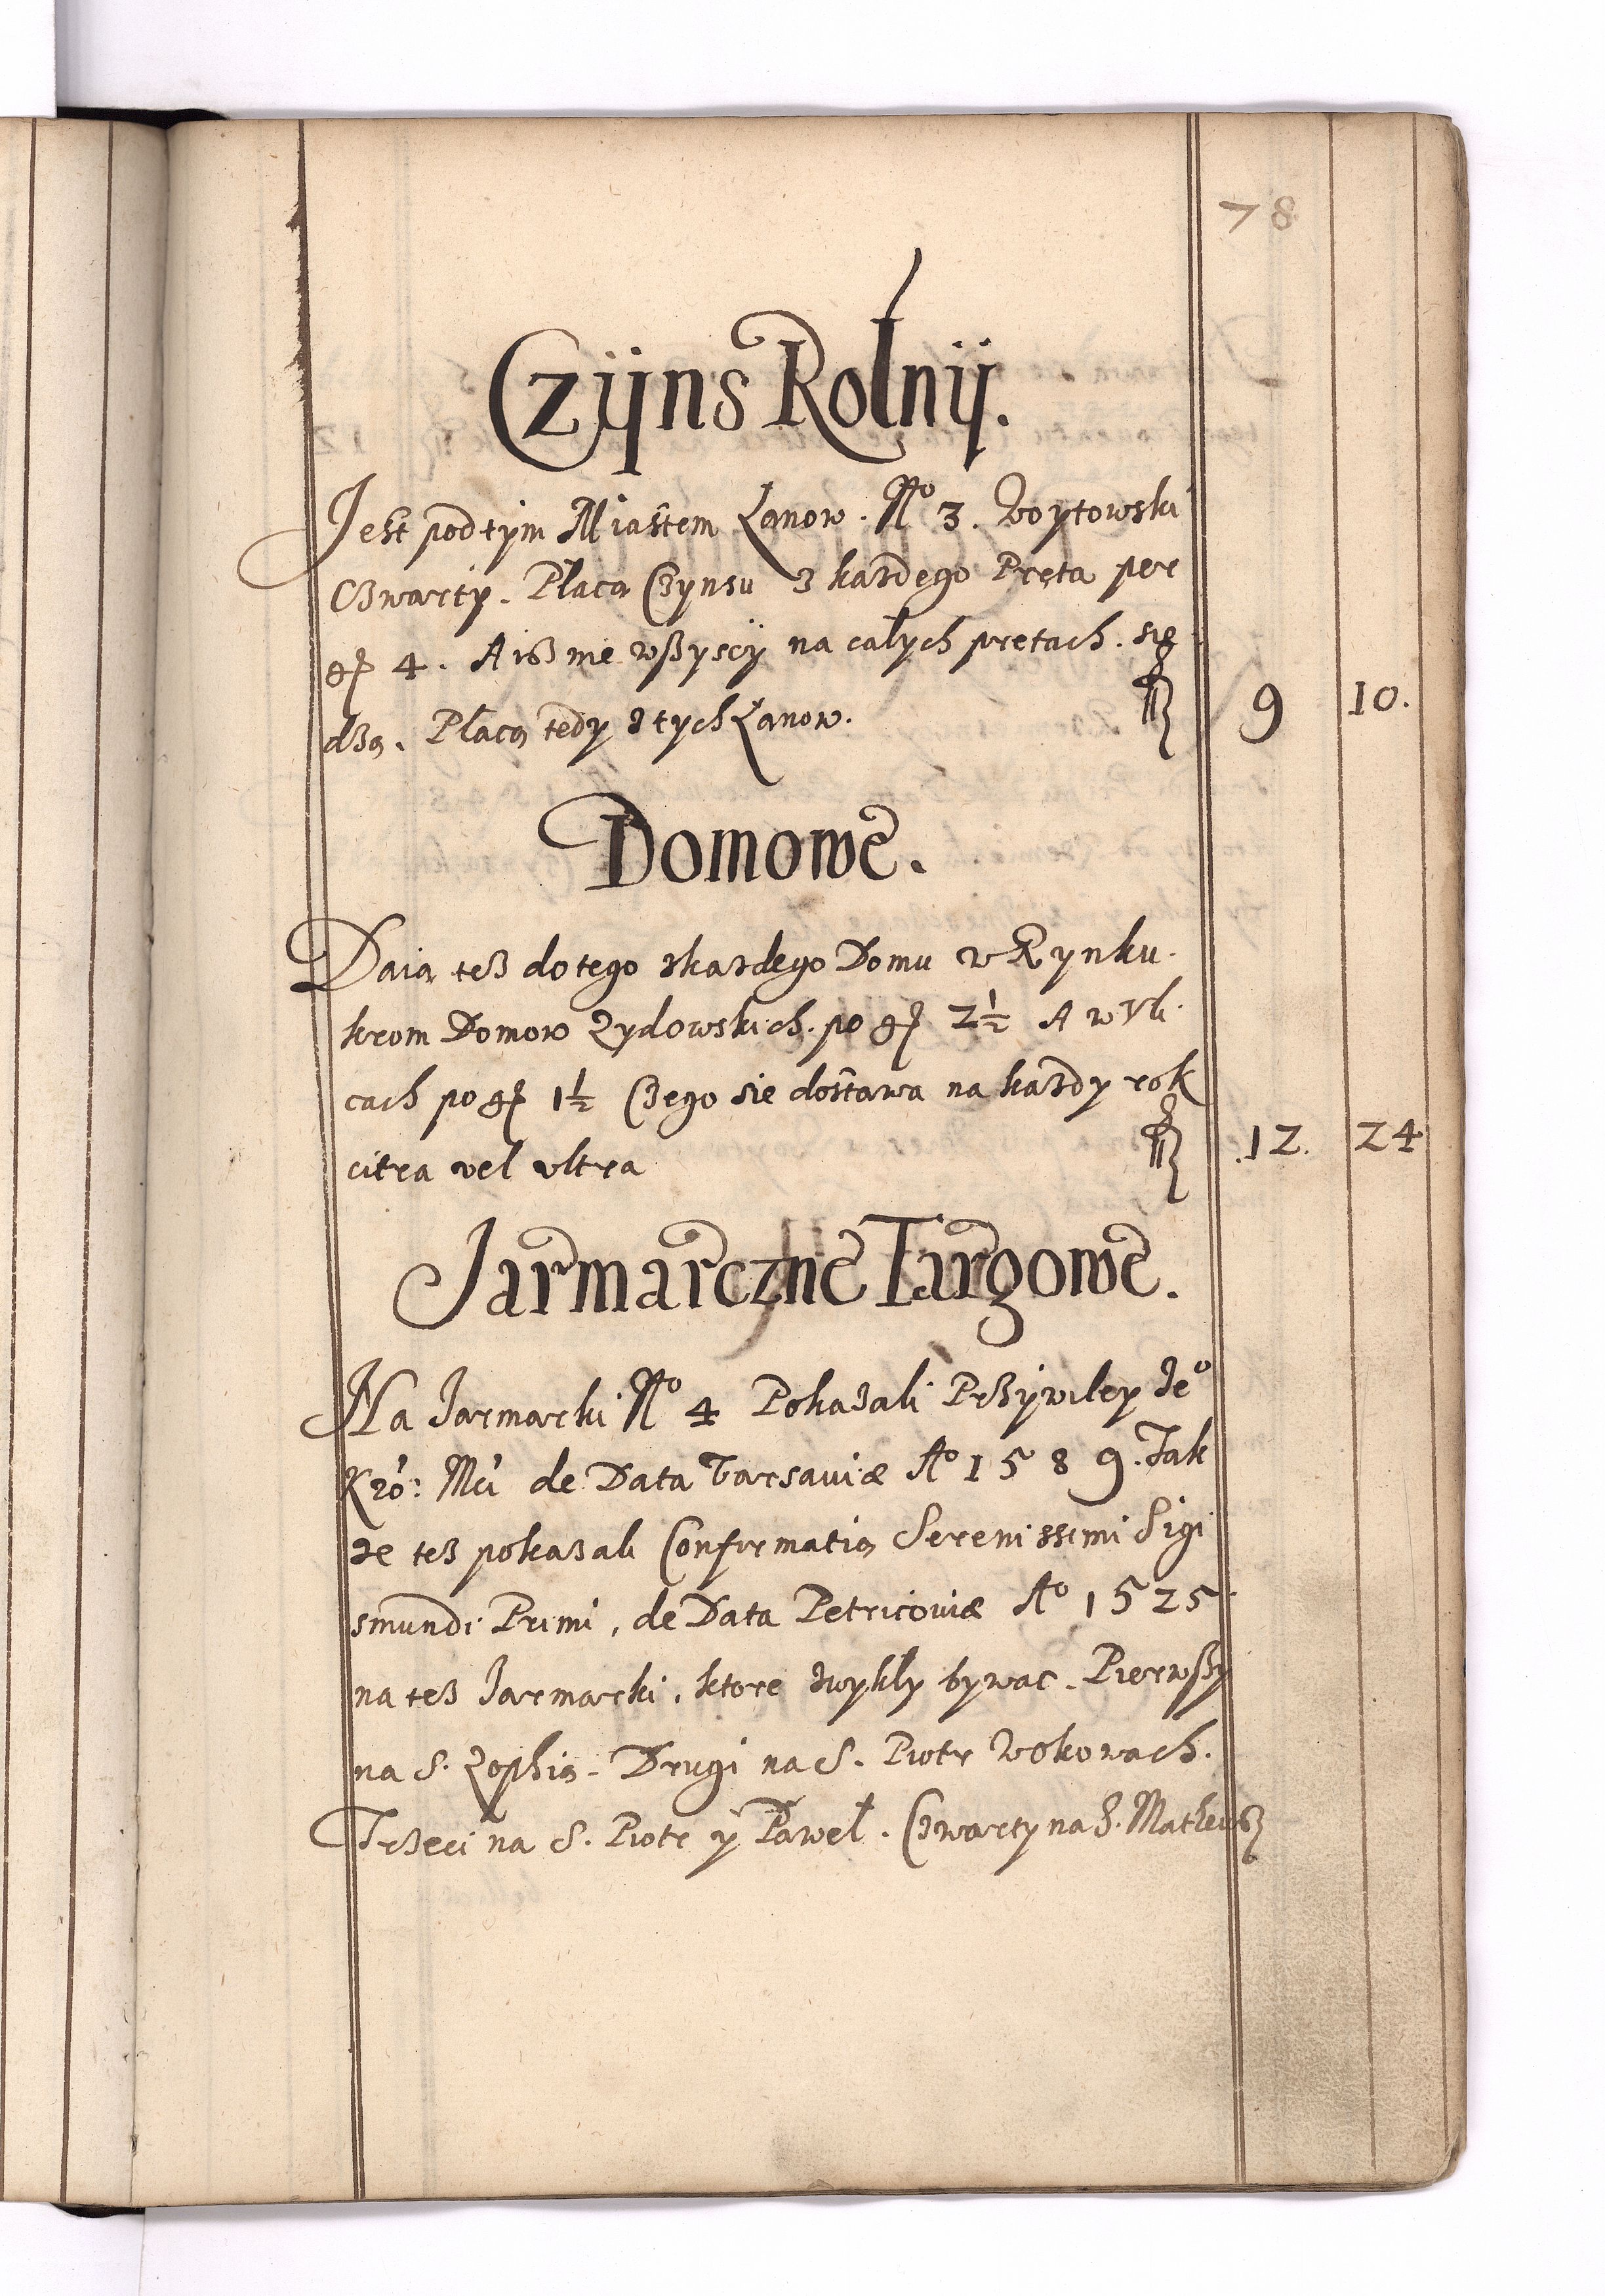 78
Czÿns Rolnÿ.
Jest pod tym Miastem Łanow. No 3. Woytowski
Czwarty. Płacą Czynsu z kazdego Pręta per
gr 4. A isz nie wszyscÿ na całych prętach. sie
dzą. Płacą tedy z tych Łanow. fl 9 10.
Domowe.
Daią tesz do tego z kazdego Domu w Rynku.
krom Domow Zydowskich. po gr 2½ A w Vli
cach po gr 1½ Czego sie dostawa na kazdy rok
citra vel vltra fl 12. 24
Jarmarczne Targowe.
Na Jarmarki No 4 Pokazali Przÿwiley Jeo
Kró: Mci de Data Varsauiæ Ao 1589. Tak
ze tesz pokazali Confirmatią Serenissimi Sigi
smundi Primi, de Data Petricouiæ Ao 1525
na tesz Jarmarki, ktore zwykły bywac. Pierwszy
na S. Zophią. Drugi na S. Piotr Wokowach.
Trzeci na S. Piotr ÿ Paweł. Czwarty na S. Matheusz